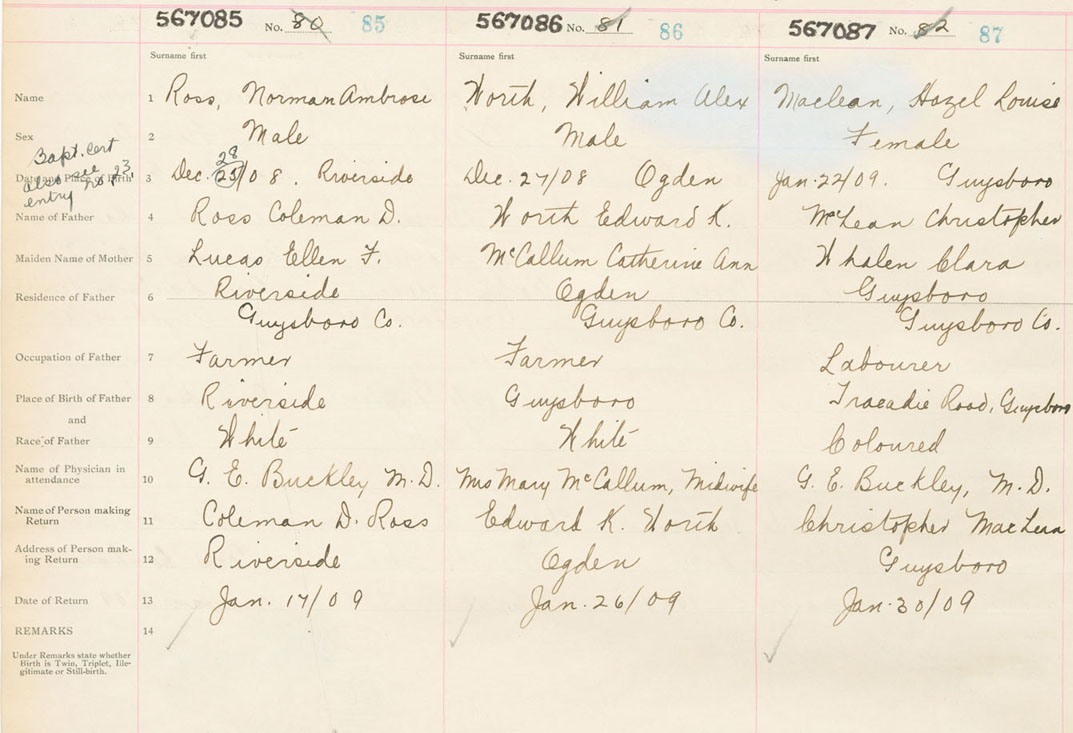 567085 No. 80 85 567086 No. 81 86 567087 No. 82 87
Surname first Surname first Surname first
Name 1 Ross, Norman Ambrose Worth, William Alex Maclean, Hazel Louise
Sex 2 Male Male Female
Bapt. Cert
also see no 23
entry
28
Date and Place of Birth 3 Dec. 25/08. Riverside Dec. 27/08 Ogden Jan. 22/09. Guysboro
Name of Father 4 Ross Coleman D. Worth Edward K. McLean Christopher
Maiden Name of Mother 5 Lucas Ellen F. McCallum Catherine Ann Whalen Clara
Residence of Father 6 Riverside Ogden Guysboro
Guysboro Co. Guysboro Co. Guysboro Co.
Occupation of Father 7 Farmer Farmer Labourer
Place of Birth of Father 8 Riverside Guysboro Tracadie Road, Guysboro
and
Race of Father 9 White White Coloured
Name of Physician in
attendance 10 G. E. Buckley M.D. Mrs Mary McCallum, Midwife G. E. Buckley, M.D.
Name of Person making
Return 11 Coleman D. Ross Edward K. Worth Christopher MacLean
Address of Person mak-
ing Return 12 Riverside Ogden Guysboro
Date of Return 13 Jan. 17/09 Jan. 26/09 Jan. 30/09
REMARKS 14
Under Remarks state whether
Birth is Twin, Triplet, Ille-
gitimate or Still-birth.